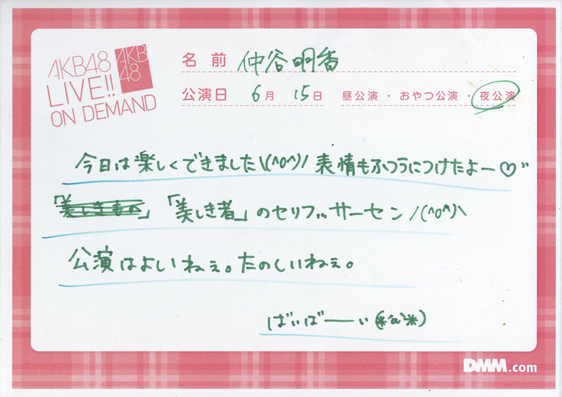 AKB48
LIVE!!
ON DEMAND
AKB
48
名前 仲谷明香
公演日 6月 15日 昼公演・おやつ公演・夜公演
今日は楽しくできました\(^o^)/ 表情もふつうにつけたよー♡
「美しき者」のセリフ、サーセン/(^o^)\
公演はよいねぇ。たのしいねぇ。
ばいばーい
DMM.com